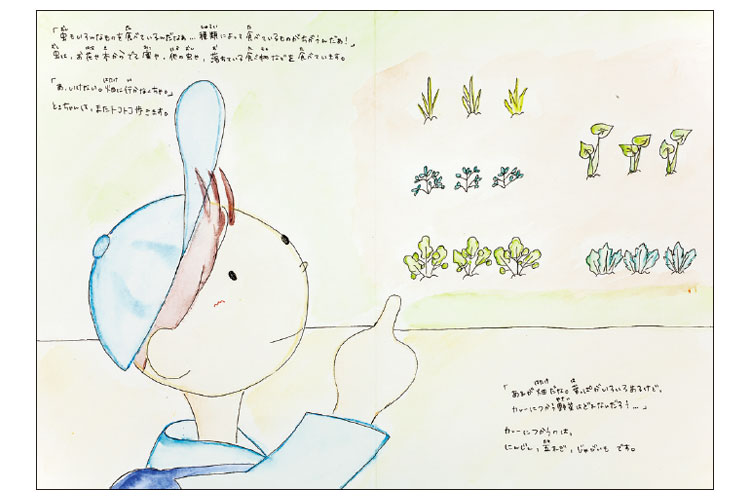 「虫もいろんなものを食べているんだなぁ…種類によって食べているものがちがうんだあ！」
虫は、お花や木からでる蜜や、他の虫や、落ちている食べ物などを食べています。
「あ、いけない。畑に行かなくちゃ。」
またトコトコ歩きます。
「あれが畑だな。葉っぱがいろいろあるけど、
カレーにつかう野菜はどれなんだろう…」
カレーにつかうのは、
にんじん、玉ねぎ、じゃがいも です。